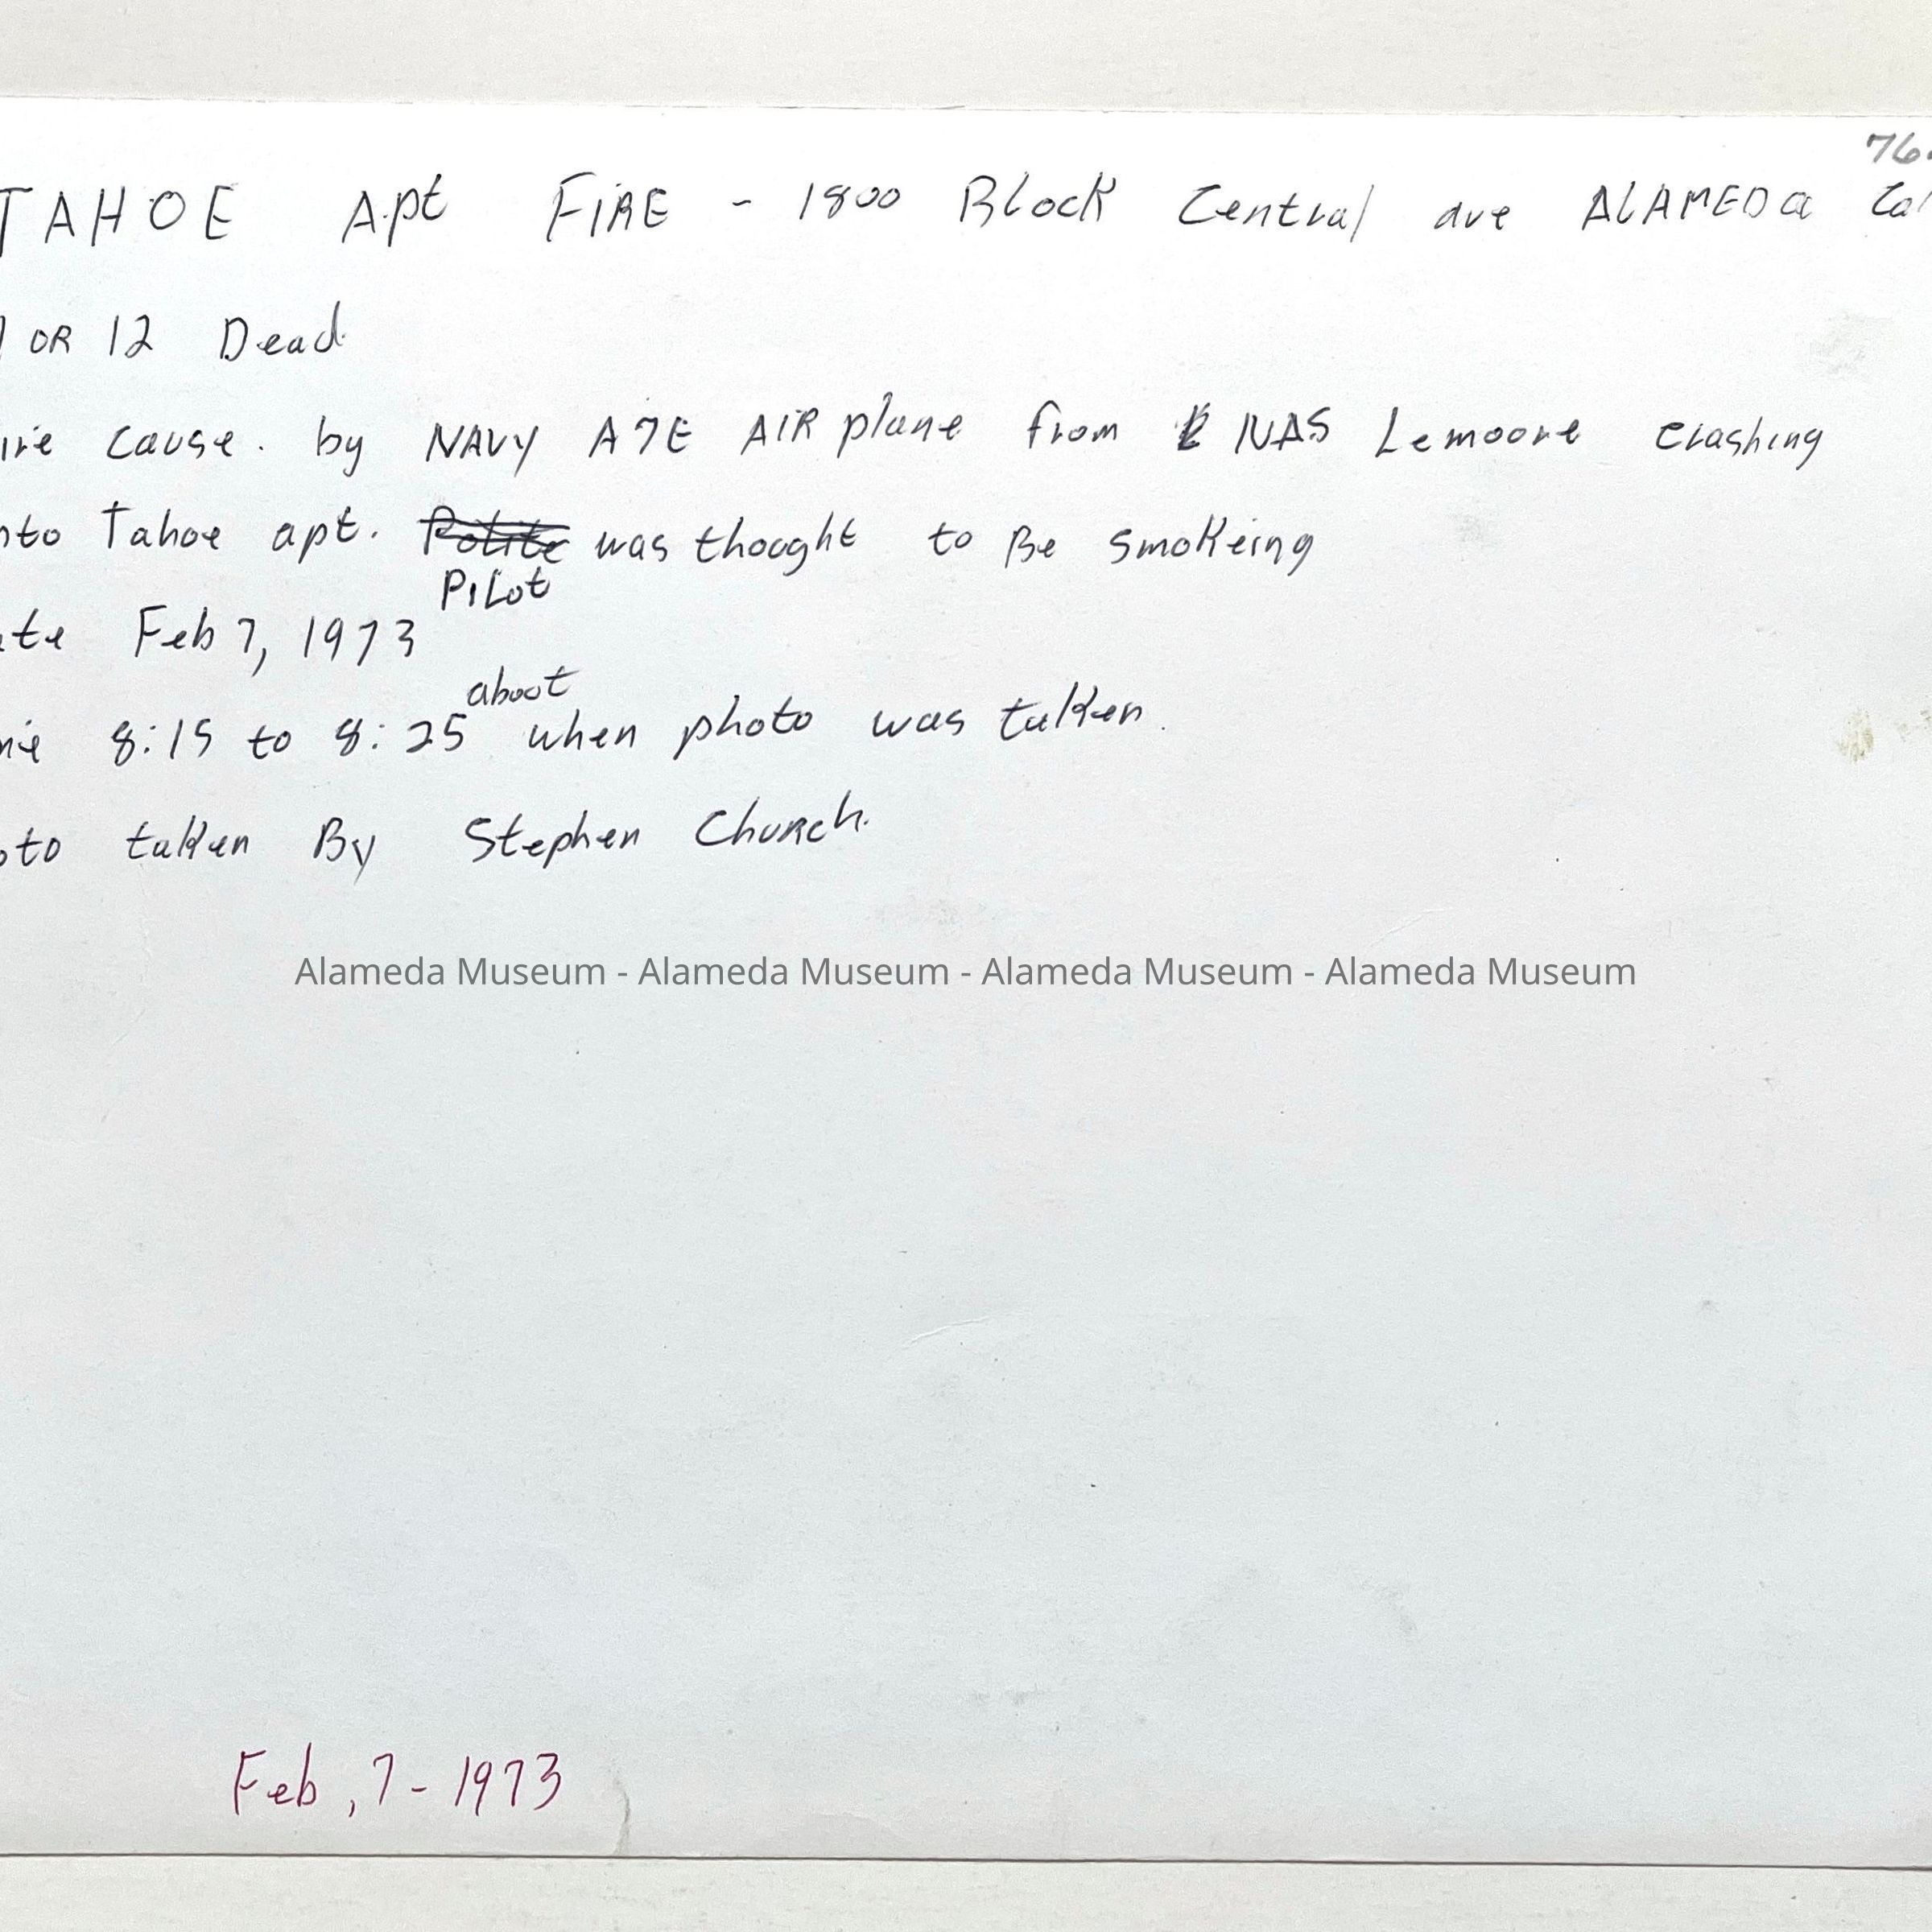 76.
TAHOE Apt FIRE - 1800 Block Central ave ALAMEDa Cal
OR 12 Dead
ire cause. by NAVY A7E AIRplane from NAS Lemoore crashing
nto Tahoe apt. Polite was thooght to Be smoKeing
PiLot
ate Feb 7, 1973
aboot
me 8:15 to 8:25 when photo was taken.
oto taken By Stephen Church.
Alameda Museum - Alameda Museum - Alameda Museum - Alameda Museum
Feb, 7 - 1973